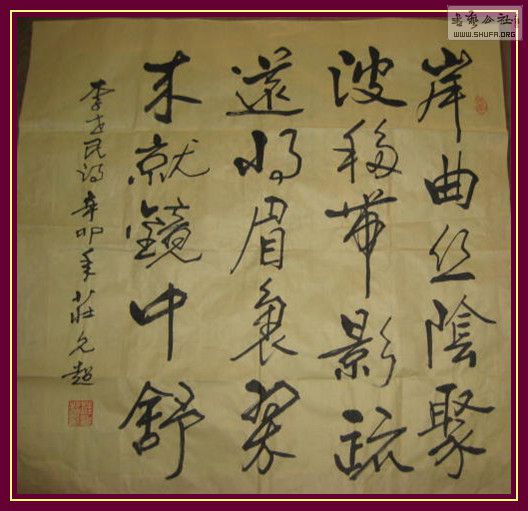 岸曲丝陰聚
波移帶影疏
還将眉裏翠
来就鏡中舒
李世民詩辛卯年莊允超
书艺公社
WWW.SHUFA.ORG